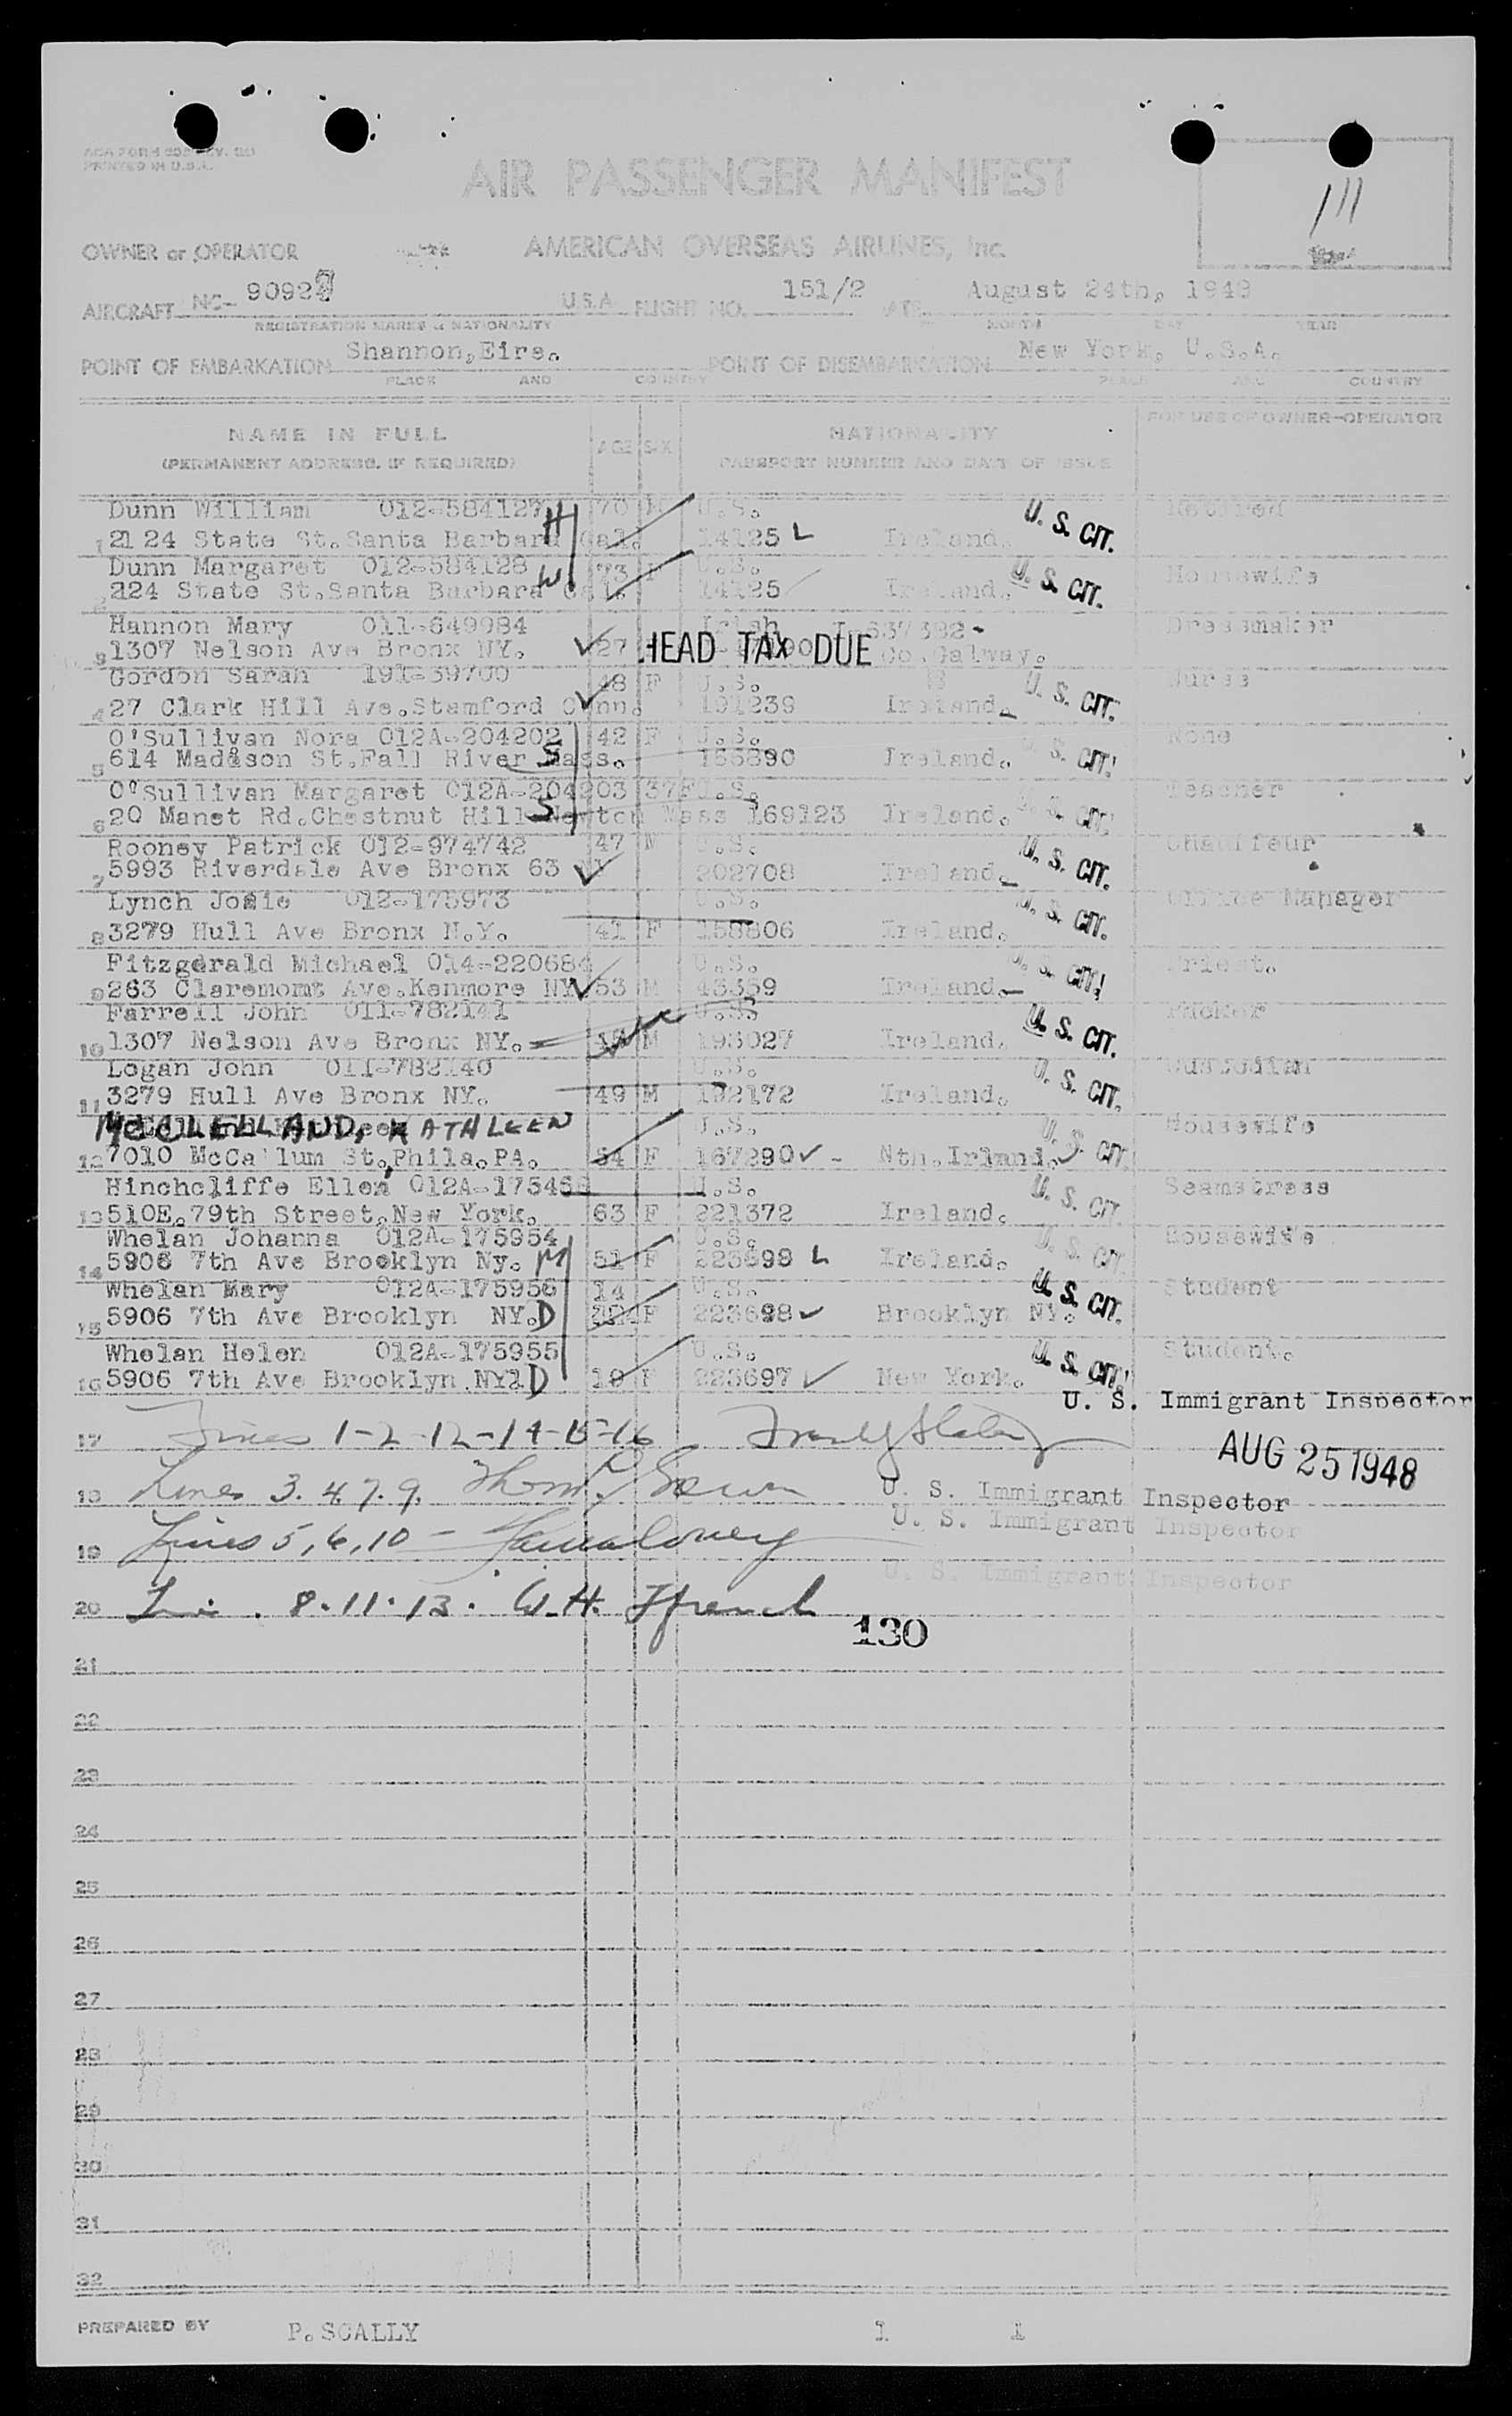 PRINTED IN U.S.A.
111
AIR PASSENGER MANIFEST
OWNER or OPERATOR AMERICAN OVERSEAS AIRLINES, Inc.
AIRCRAFT NC- 9092 U.S.A FLIGHT NO. 151/2 DATE August 24th, 1948
REGISTRATION MARKS & NATIONALITY MONTH DAY YEAR
POINT OF EMBARKATION Shannon, Eire. POINT OF DISEMBARKATION New York, U.S.A.
PLACE AND COUNTRY PLACE AND COUNTRY
NAME IN FULL AGE SEX NATIONALITY FOR USE OF OWNER-OPERATOR
(PERMANENT ADDRESS, IF REQUIRED) PASSPORT NUMBER AND DATE OF ISSUE
Dunn William 012-584127 H 70 M U.S. U. S. CIT. Retired
1 2124 State St. Santa Barbara Cal. 14125 L Ireland.
Dunn Margaret 012-584128 W 73 F U.S. U. S. CIT. Housewife
2 2124 State St. Santa Barbara 14125 Ireland.
Hannon Mary 011-649984 Irish Dressmaker
3 1307 Nelson Ave Bronx NY. 27 HEAD TAX DUE Co. Galway.
Gordon Sarah 191-39700 48 F U.S. U. S. CIT. Nurse
4 27 Clark Hill Ave. Stamford Conn. 191239 Ireland.
O'Sullivan Nora 012A-204202 42 F U.S. U. S. CIT. None
5 614 Madison St. Fall River Mass. S 165890 Ireland.
O'Sullivan Margaret 012A-204203 37F U.S. Teacher
6 20 Manet Rd. Chestnut Hill Newton Mass S 169123 Ireland. U. S. CIT.
Rooney Patrick 012-974742 47 M U.S. U. S. CIT. Chauffeur
7 5993 Riverdale Ave Bronx 63 NY 202708 Ireland.
Lynch Josie 012-175973 U.S. U. S. CIT. Office Manager
8 3279 Hull Ave Bronx N.Y. 41 F 158806 Ireland.
Fitzgerald Michael 014-220684 U.S. U. S. CIT. Priest.
9 263 Claremomt Ave. Kenmore NY 53 M 43359 Ireland.
Farrell John 011-782141 U.S. U. S. CIT. Packer
10 1307 Nelson Ave Bronx NY. M 193027 Ireland.
Logan John 011-782140 U.S. U. S. CIT. Custodian
11 3279 Hull Ave Bronx NY. 49 M 192172 Ireland.
McCLELLAND, KATHLEEN U.S. U. S. CIT. Housewife
12 7010 McCallum St. Phila. PA. 54 F 167290 Nth. Irland.
Hinchcliffe Ellen 012A-17546 U.S. U. S. CIT. Seamstress
13 510E. 79th Street, New York. 63 F 221372 Ireland.
Whelan Johanna 012A-175954 U.S. U. S. CIT. Housewife
14 5906 7th Ave Brooklyn Ny. M 51 F 223698 L Ireland.
Whelan Mary 012A-175956 14 U.S. U. S. CIT. Student
15 5906 7th Ave Brooklyn NY. D F 223698 Brooklyn NY.
Whelan Helen 012A-175955 U.S. U. S. CIT. Student.
16 5906 7th Ave Brooklyn NY D 19 F 223697 New York.
U. S. Immigrant Inspector
17 Lines 1-2-12-14-15-16
AUG 25 1948
18 Lines 3. 4. 7. 9. U. S. Immigrant Inspector
U. S. Immigrant Inspector
19 Lines 5, 6, 10 -
U. S. Immigrant Inspector
20 8. 11. 13. W. H. Ffrench
130
21
22
23
24
25
26
27
28
29
30
31
32
PREPARED BY P. SCALLY 1 1